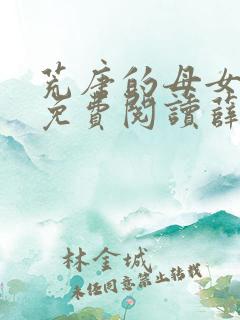 荒唐的母女
免費閱讀薛
林金城
未經同意禁止轉載